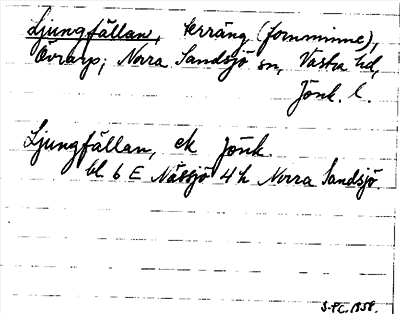 Ljungfällan, terräng (fornminne),
Övrarp; Norra Sandsjö sn, Västra hd,
Jönk. l.
Ljungfällan, ek Jönk.
bl 6 E Nässjö 4 h Norra Sandsjö.
S-FC. 1958.